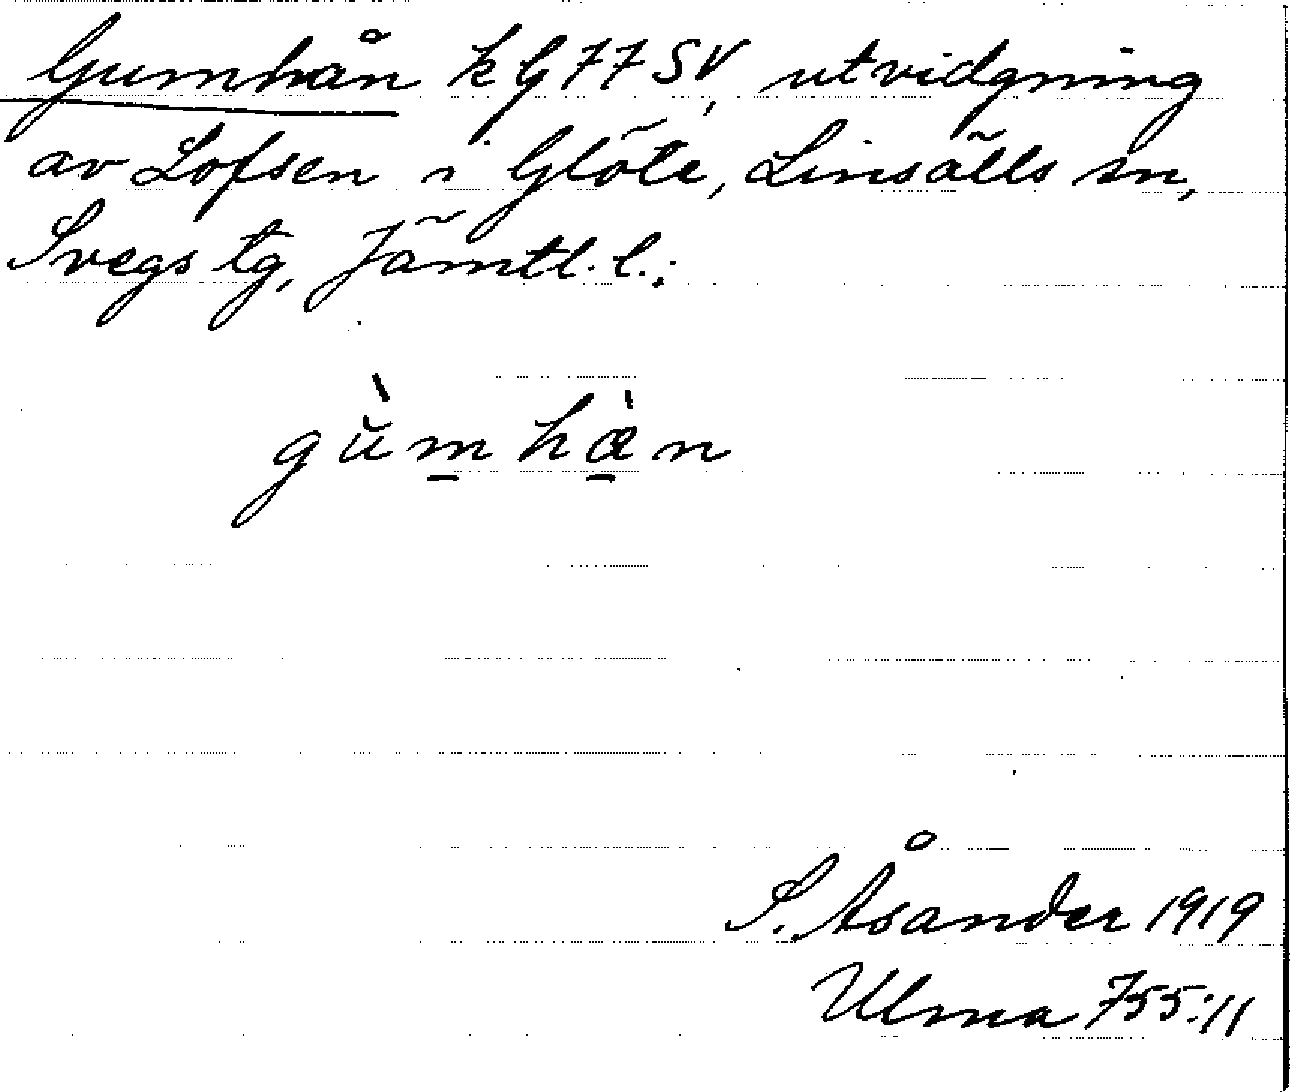 Gumhån k G 77 SV, utvidgning
av Lofsen i Glöte, Linsälls sn,
Svegs tg, Jämtl. l.:
gùmhæ̀n
S. Åsander 1919
Ulma 755:11